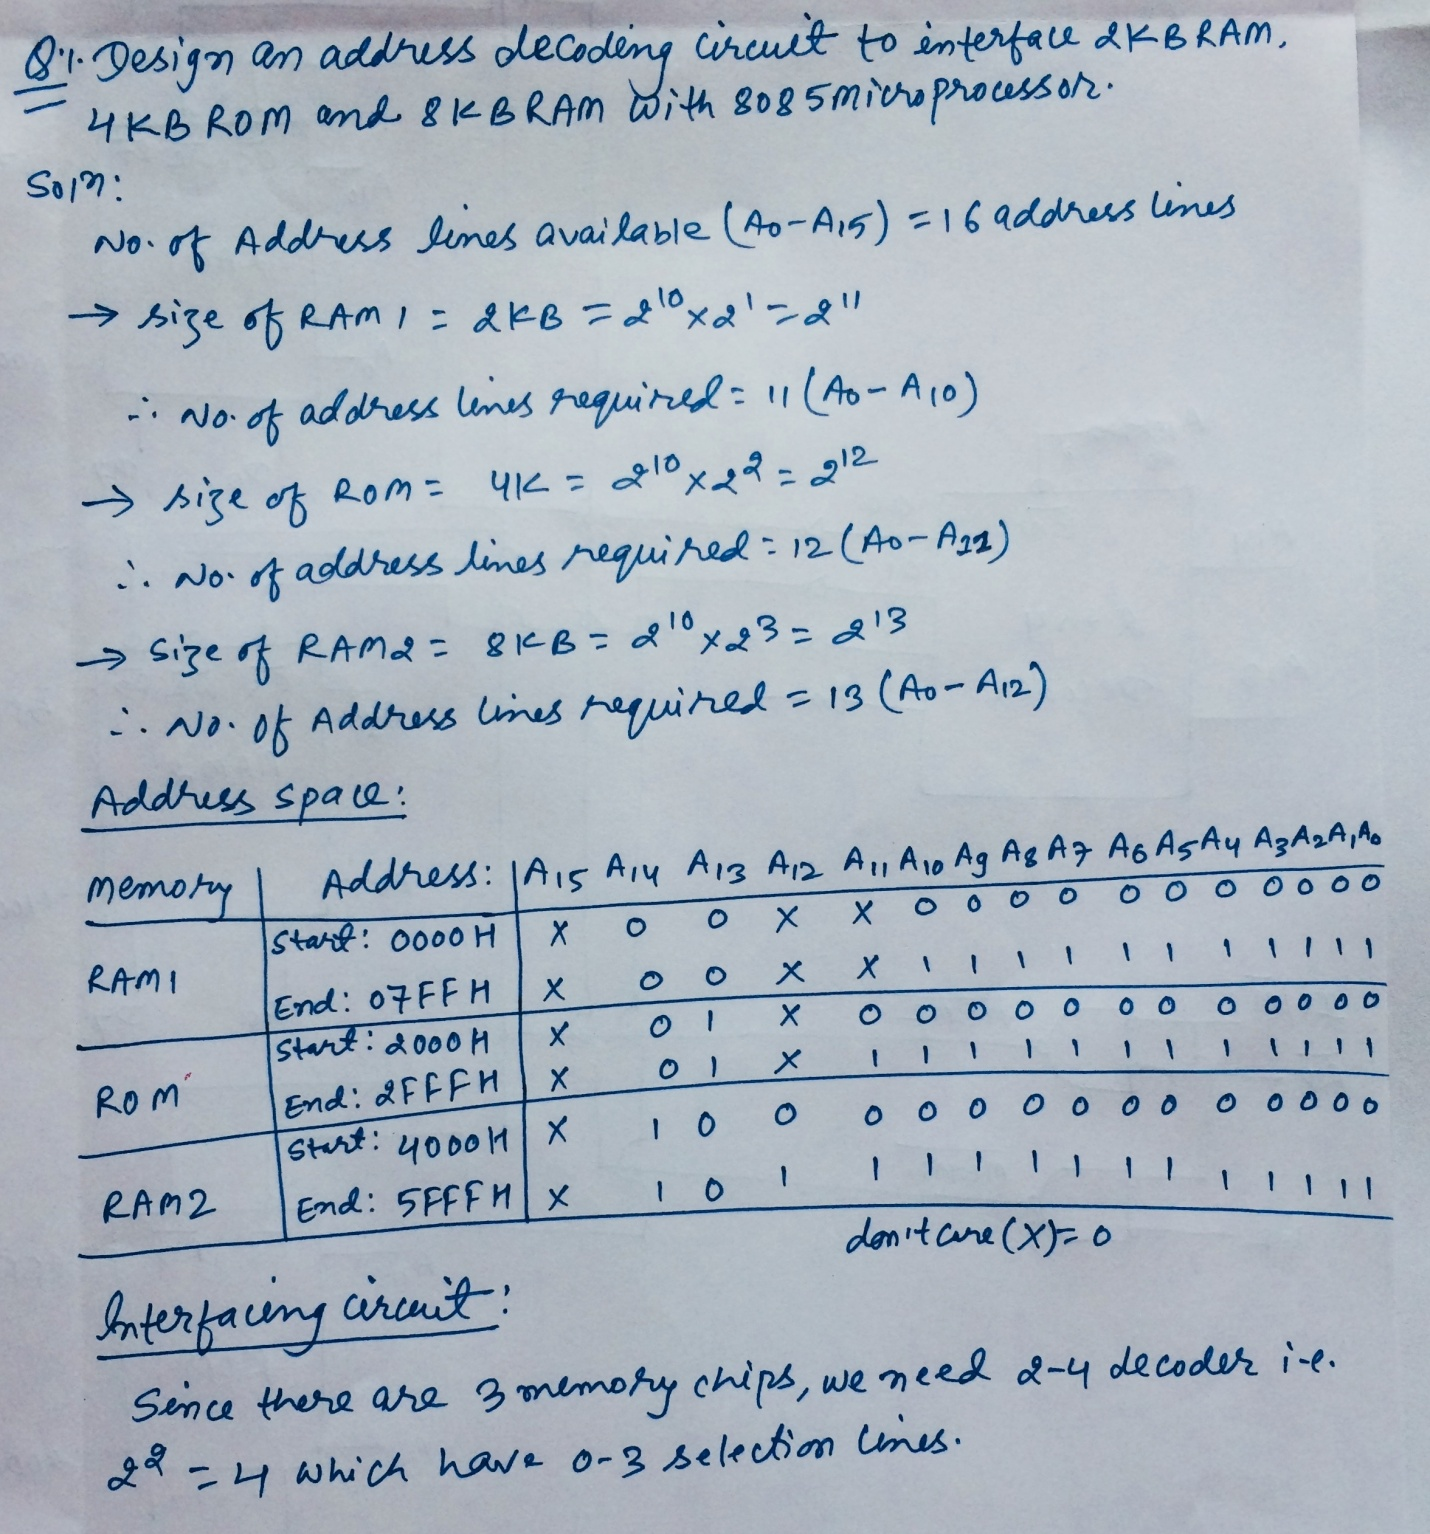 Q.1. Design an address decoding circuit to interface 2KB RAM,
4KB ROM and 8KB RAM with 8085 microprocessor.
Soln:
No. of Address lines available (A0-A15) = 16 address lines
→ size of RAM1 = 2KB = 2^10 x 2^1 = 2^11
∴ No. of address lines required = 11 (A0-A10)
→ size of ROM = 4K = 2^10 x 2^2 = 2^12
∴ No. of address lines required = 12 (A0-A11)
→ Size of RAM2 = 8KB = 2^10 x 2^3 = 2^13
∴ No. of Address lines required = 13 (A0-A12)
Address space:
Memory | Address: | A15 A14 A13 A12 A11 A10 A9 A8 A7 A6 A5 A4 A3 A2 A1 A0
RAM1 | Start: 0000H | X 0 0 X X 0 0 0 0 0 0 0 0 0 0 0
End: 07FFH | X 0 0 X X 1 1 1 1 1 1 1 1 1 1 1
ROM | Start: 2000H | X 0 1 X 0 0 0 0 0 0 0 0 0 0 0 0
End: 2FFFH | X 0 1 X 1 1 1 1 1 1 1 1 1 1 1 1
RAM2 | Start: 4000H | X 1 0 0 0 0 0 0 0 0 0 0 0 0 0 0
End: 5FFFH | X 1 0 1 1 1 1 1 1 1 1 1 1 1 1 1
don't care (X) = 0
Interfacing circuit:
Since there are 3 memory chips, we need 2-4 decoder i.e.
2^2 = 4 which have 0-3 selection lines.